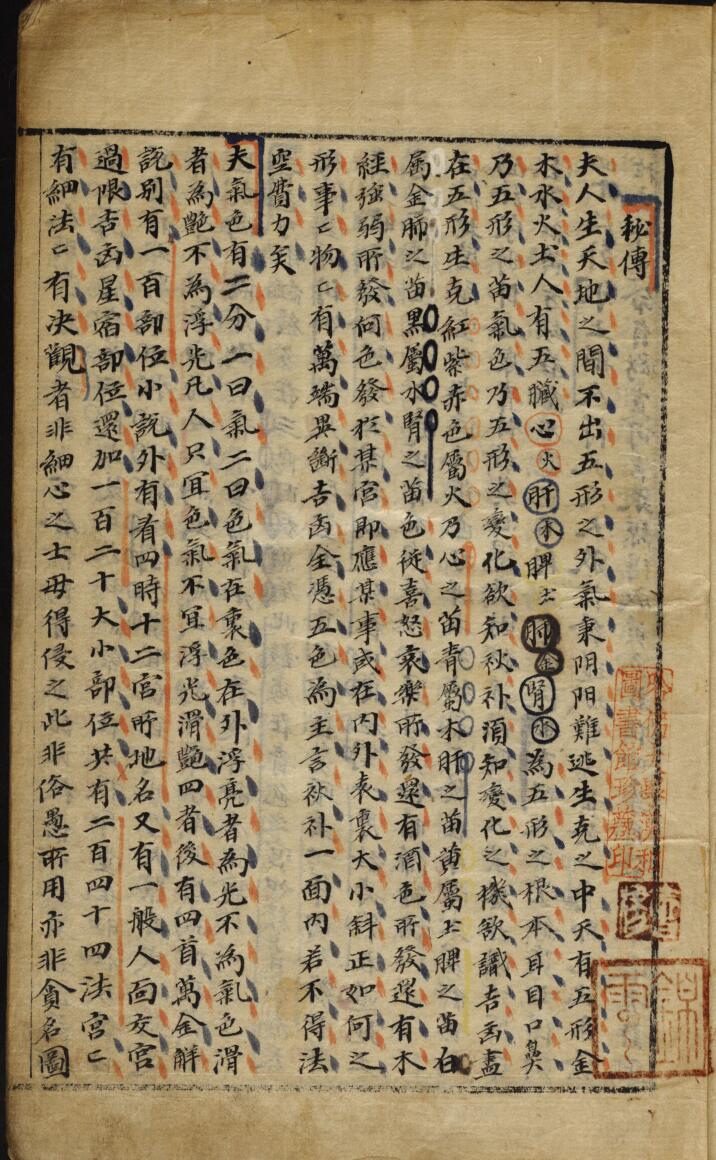 秘傳
夫人生天地之間不出五形之外氣秉阴阳難逃生克之中天有五形金
木水火土人有五臟心火肝木脾土肺金腎水為五形之根本耳目口鼻
乃五形之苗氣色乃五形之變化欲知秋补須知變化之機欲識吉凶盡
在五形生克紅紫赤色屬火乃心之苗青屬木肝之苗黄屬土脾之苗白
屬金肺之苗黑屬水腎之苗色從喜怒哀樂所發還有酒色所發還有木
經强弱所發何色發於某官即應某事或在内外表裏大小斜正如何之
形事〻物〻有萬端異斷吉凶全憑五色為主言秋补一面内若不得法
空費力矣
夫氣色有二分一曰氣二曰色氣在裏色在外浮亮者為光不為氣色滑
者為艷不為浮光凡人只宜色氣不宜浮光滑艷四者後有四首萬金觧
説别有一百部位小説外有看四時十二宮所地名又有一般人面交宮
過限吉凶星宿部位還加一百二十大小部位共有二百四十四法宮〻
有細法〻有决觀者非細心之士毋得侵之此非俗愚所用亦非貪名圖
圖書館珍藏印